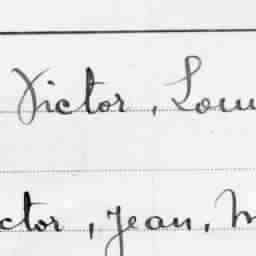 Victor, Lou
ctor, Jean, M